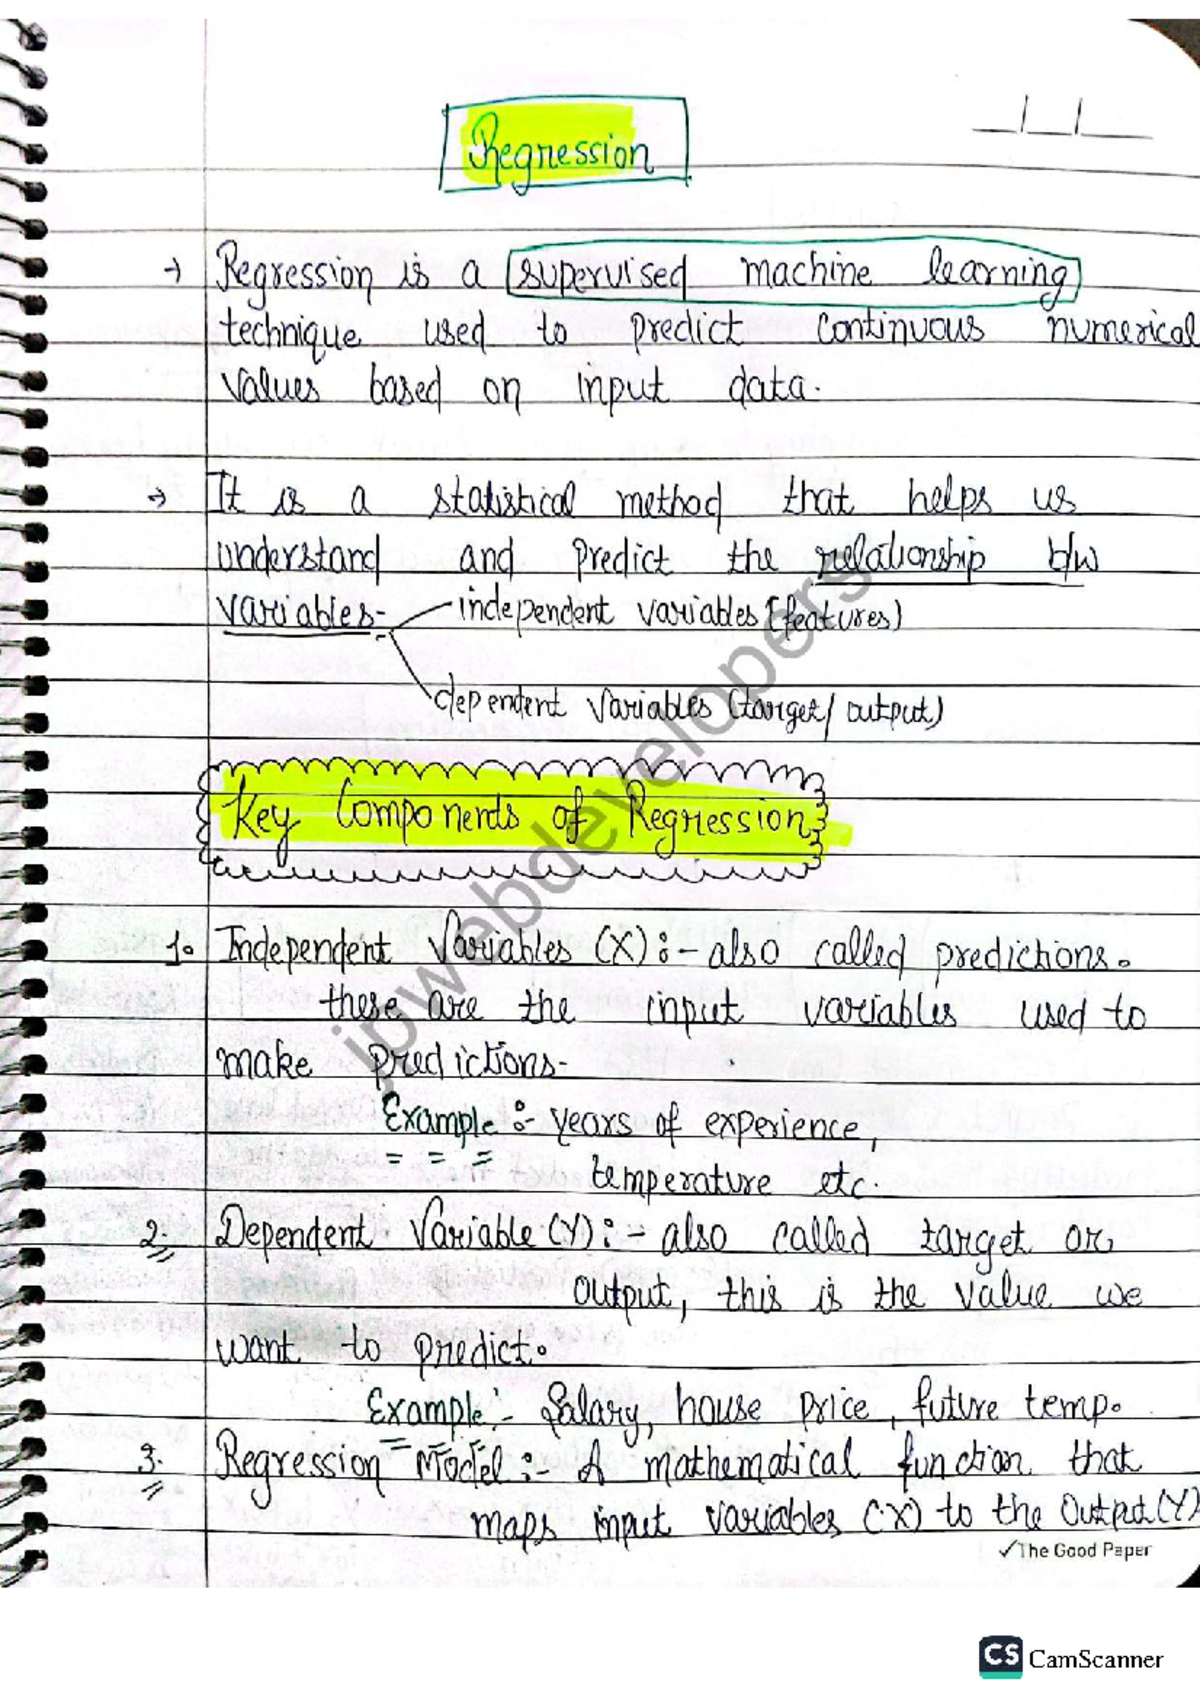 Regression
→ Regression is a supervised machine learning
technique used to predict continuous numerical
values based on input data.
→ It is a statistical method that helps us
understand and predict the relationship b/w
variables- independent variables (features)
dependent variables (target/output)
Key Components of Regression
1. Independent Variables (X):- also called predictions.
these are the input variables used to
make predictions-
Example:- years of experience,
temperature etc.
2. Dependent Variable (Y):- also called target or
output, this is the value we
want to predict.
Example:- Salary, house price, future temp.
3. Regression Model:- A mathematical function that
maps input variables (X) to the output (Y)
✓The Good Paper
jpwebdevelopers
CS CamScanner